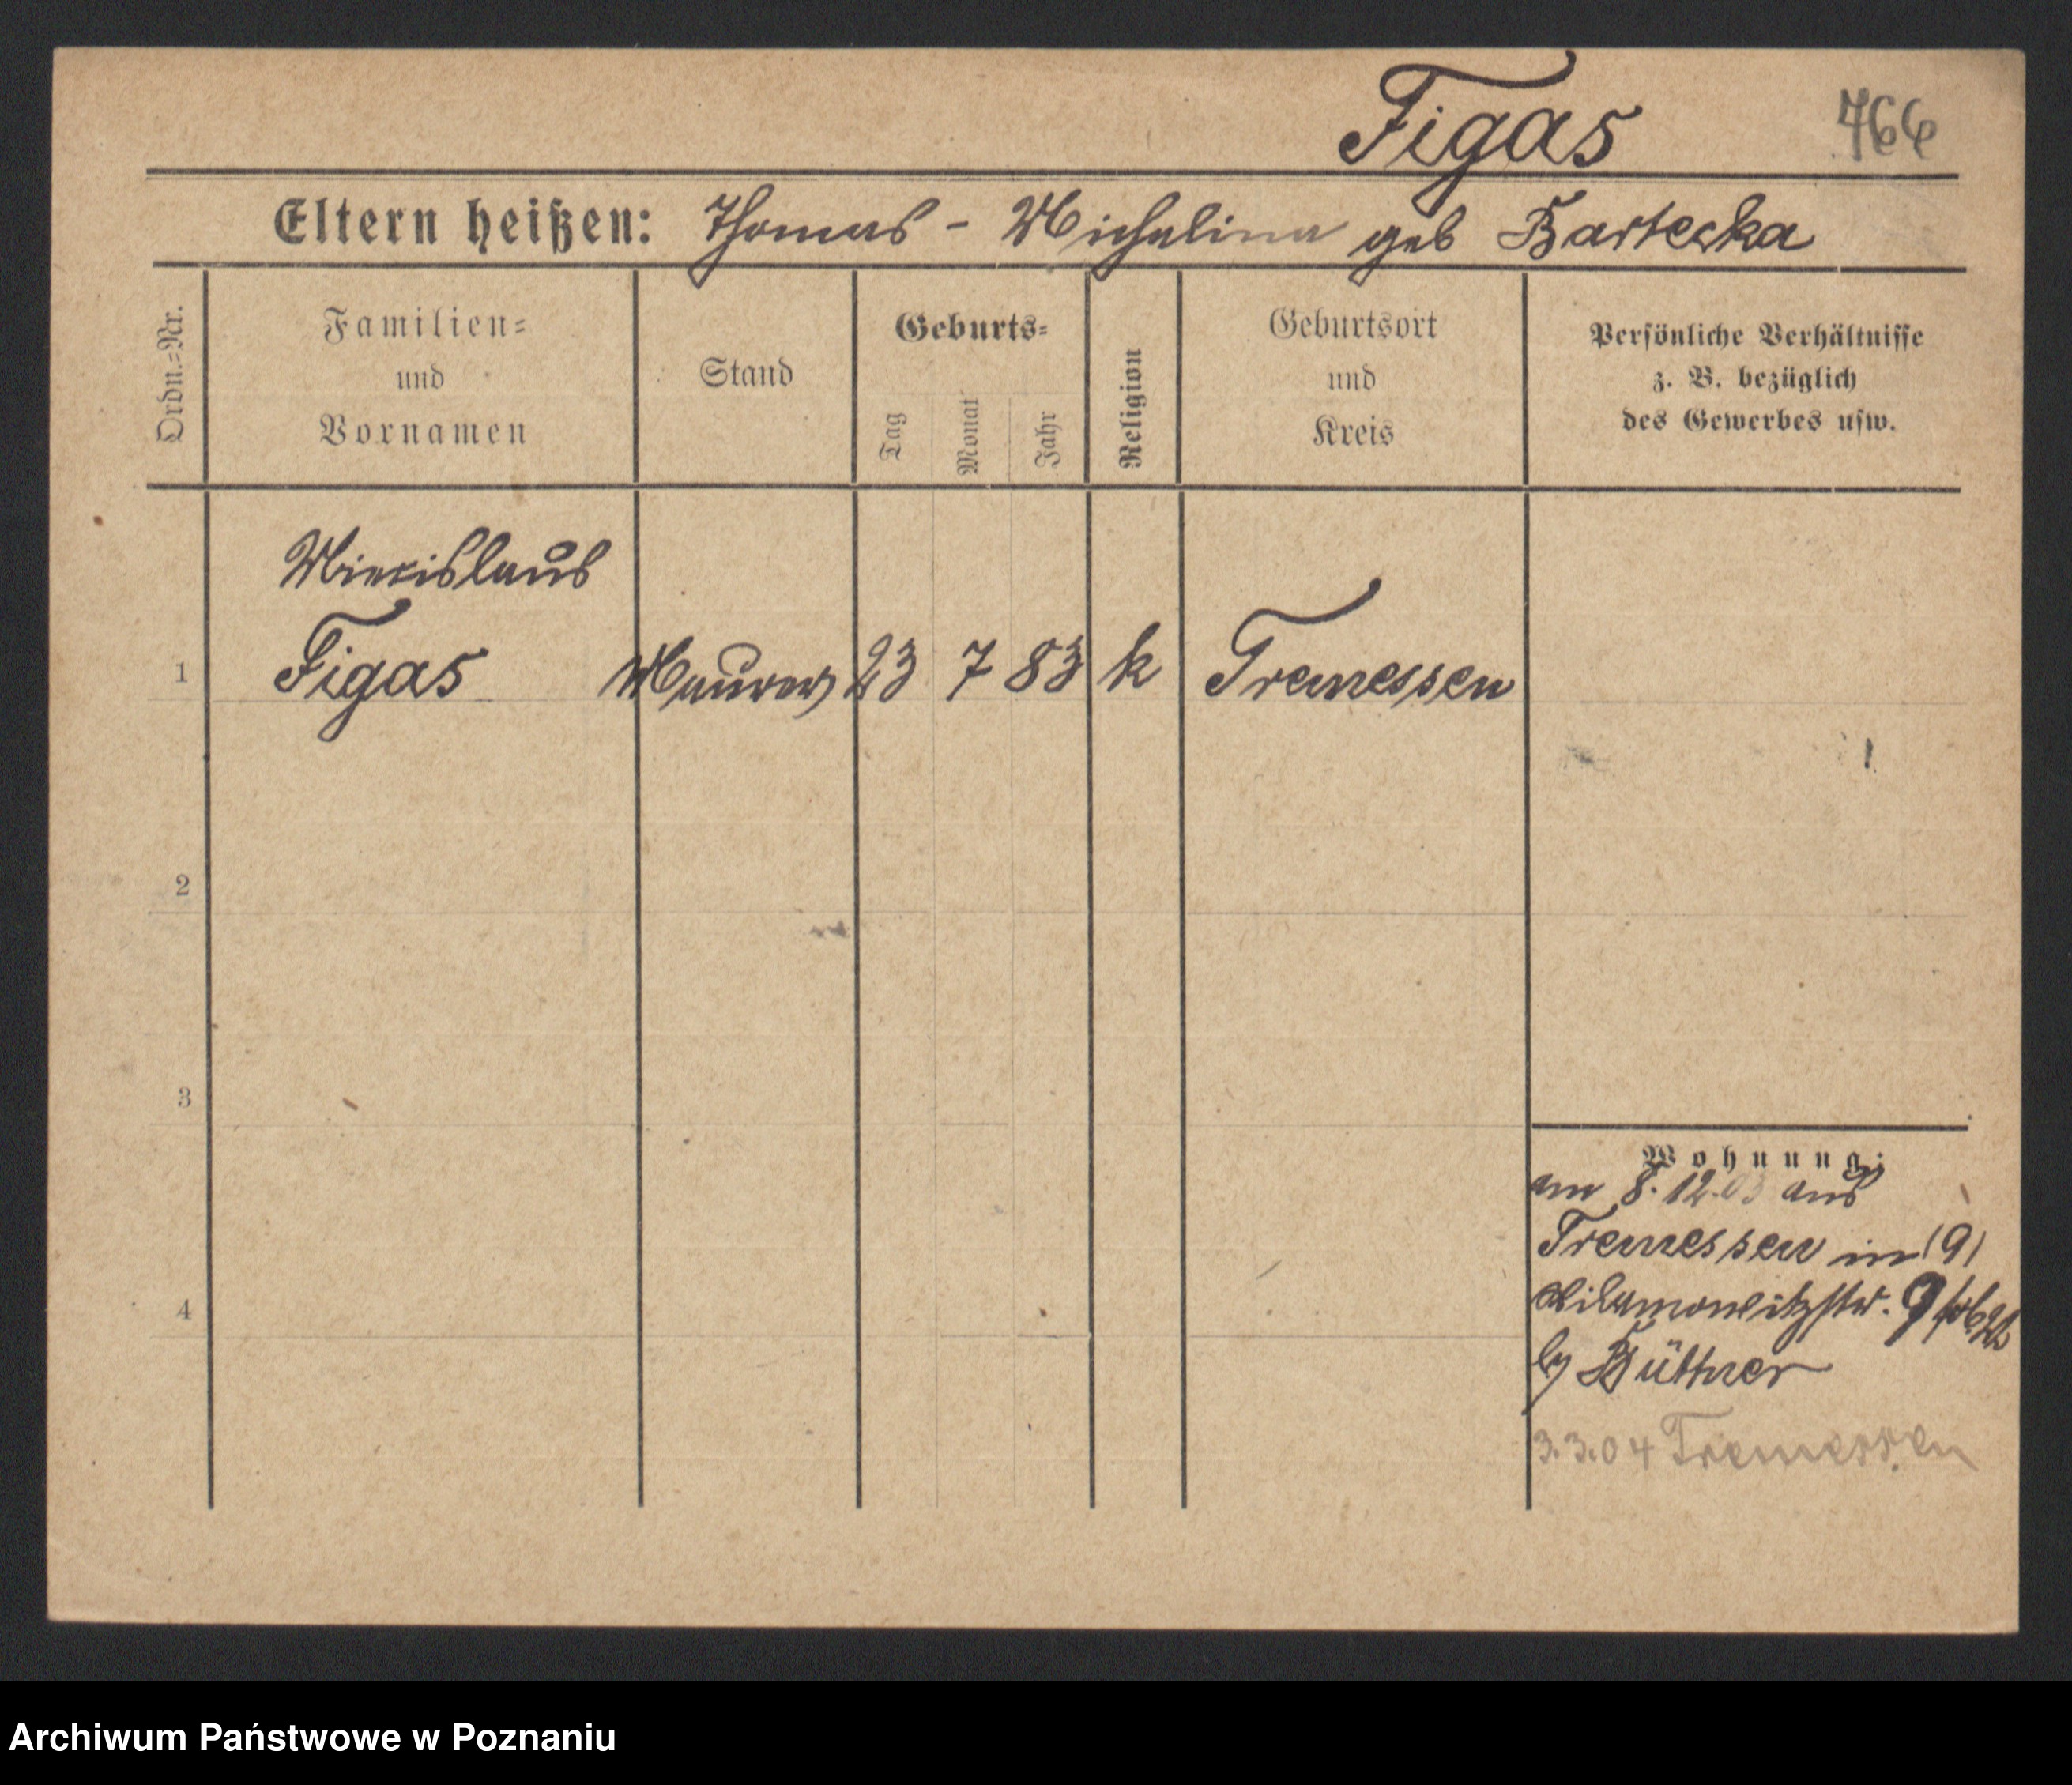 Figas 766
Eltern heißen: Thomas - Michalina geb Barteska
Ordn.=Nr.
Familien=
und
Vornamen
Stand
Geburts=
Tag
Monat
Jahr
Religion
Geburtsort
und
Kreis
Persönliche Verhältnisse
z. B. bezüglich
des Gewerbes usw.
Miecislaus
1 Figas Maurer 23 7 83 k Tremessen
2
3
4
Wohnung:
am 8.12.03 aus
Tremessen in (9)
9
by Büttner
3.3.04 Tremessen
Archiwum Państwowe w Poznaniu